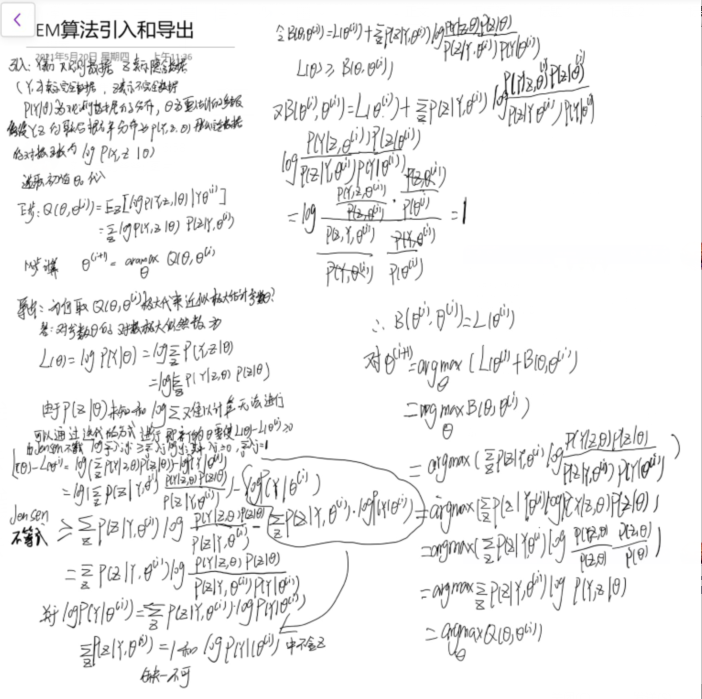 EM算法引入和导出
2021年5月20日 星期四 上午11:36
引入: 观测数据 Z表示隐数据
(Y,Z)表示完全数据, Y表示不完全数据
log P(Y,Z|θ)
选取初值θ₀
E步: Q(θ,θ⁽ⁱ⁾)=E_Z[logP(Y,Z|θ)|Y,θ⁽ⁱ⁾]
=Σ_Z logP(Y,Z|θ) P(Z|Y,θ⁽ⁱ⁾)
M步: θ⁽ⁱ⁺¹⁾=argmax_θ Q(θ,θ⁽ⁱ⁾)
导出: 为何取Q(θ,θ⁽ⁱ⁾)极大代来近似极大估计参数θ?
答: 对参数θ的对数极大似然函数为
L(θ)=logP(Y|θ)=logΣ_Z P(Y,Z|θ)
=logΣ_Z P(Y|Z,θ) P(Z|θ)
由于P(Z|θ)未知和logΣ又难以计算无法进行
可以通过迭代的方式进行
L(θ)-L(θ⁽ⁱ⁾)=log(Σ_Z P(Y|Z,θ)P(Z|θ))-logP(Y|θ⁽ⁱ⁾)
=log(Σ_Z P(Z|Y,θ⁽ⁱ⁾) P(Y|Z,θ)P(Z|θ)/P(Z|Y,θ⁽ⁱ⁾))-logP(Y|θ⁽ⁱ⁾)
Jensen不等式 ≥Σ_Z P(Z|Y,θ⁽ⁱ⁾) log P(Y|Z,θ)P(Z|θ)/P(Z|Y,θ⁽ⁱ⁾) - Σ_Z P(Z|Y,θ⁽ⁱ⁾)·logP(Y|θ⁽ⁱ⁾)
=Σ_Z P(Z|Y,θ⁽ⁱ⁾)log P(Y|Z,θ)P(Z|θ)/P(Z|Y,θ⁽ⁱ⁾)P(Y|θ⁽ⁱ⁾)
对于logP(Y|θ⁽ⁱ⁾)=Σ_Z P(Z|Y,θ⁽ⁱ⁾)·logP(Y|θ⁽ⁱ⁾)
Σ_Z P(Z|Y,θ⁽ⁱ⁾)=1和logP(Y|θ⁽ⁱ⁾)中不含Z
缺一不可
令B(θ,θ⁽ⁱ⁾)=L(θ⁽ⁱ⁾)+Σ_Z P(Z|Y,θ⁽ⁱ⁾)log P(Y|Z,θ)P(Z|θ)/P(Z|Y,θ⁽ⁱ⁾)P(Y|θ⁽ⁱ⁾)
L(θ)≥B(θ,θ⁽ⁱ⁾)
又B(θ⁽ⁱ⁾,θ⁽ⁱ⁾)=L(θ⁽ⁱ⁾)+Σ_Z P(Z|Y,θ⁽ⁱ⁾) log P(Y|Z,θ⁽ⁱ⁾)P(Z|θ⁽ⁱ⁾)/P(Z|Y,θ⁽ⁱ⁾)P(Y|θ⁽ⁱ⁾)
log P(Y|Z,θ⁽ⁱ⁾)P(Z|θ⁽ⁱ⁾)/P(Z|Y,θ⁽ⁱ⁾)P(Y|θ⁽ⁱ⁾)
=log P(Y,Z,θ⁽ⁱ⁾)/P(Z,θ⁽ⁱ⁾)·P(Z,θ⁽ⁱ⁾)/P(θ⁽ⁱ⁾) / P(Z,Y,θ⁽ⁱ⁾)/P(Y,θ⁽ⁱ⁾) P(Y,θ⁽ⁱ⁾)/P(θ⁽ⁱ⁾) =1
∴B(θ⁽ⁱ⁾,θ⁽ⁱ⁾)=L(θ⁽ⁱ⁾)
对θ⁽ⁱ⁺¹⁾=argmax_θ (L(θ⁽ⁱ⁾)+B(θ,θ⁽ⁱ⁾))
=argmax_θ B(θ,θ⁽ⁱ⁾)
=argmax(Σ_Z P(Z|Y,θ⁽ⁱ⁾)log P(Y|Z,θ)P(Z|θ)/P(Z|Y,θ⁽ⁱ⁾)P(Y|θ⁽ⁱ⁾))
=argmax(Σ_Z P(Z|Y,θ⁽ⁱ⁾)logP(Y|Z,θ)P(Z|θ))
=argmax(Σ_Z P(Z|Y,θ⁽ⁱ⁾)log P(Y,Z,θ)/P(Z,θ) P(Z,θ)/P(θ))
=argmaxΣ_Z P(Z|Y,θ⁽ⁱ⁾)log P(Y,Z|θ)
=argmax_θ Q(θ,θ⁽ⁱ⁾)